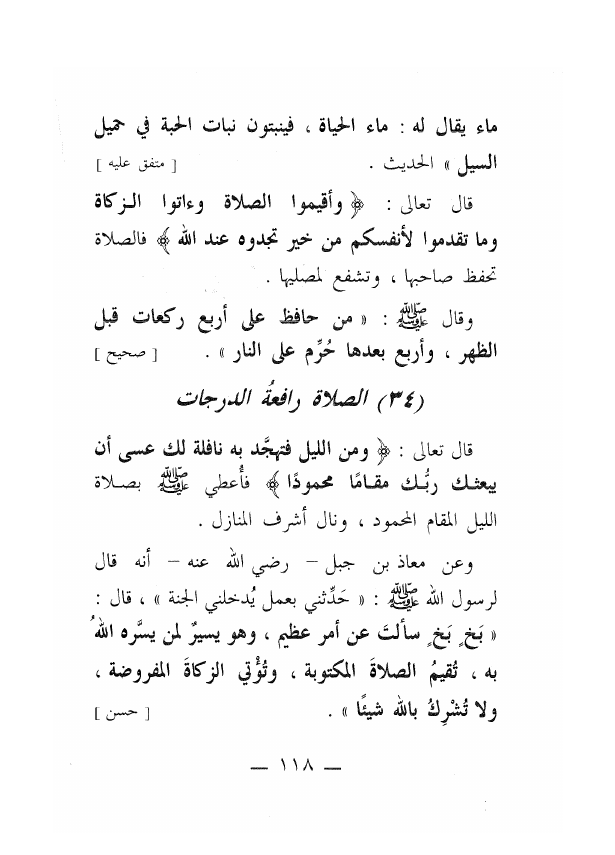 ماء يقال له : ماء الحياة ، فينبتون نبات الحبة في حميل
السيل » الحديث . [ متفق عليه ]
قال تعالى : ﴿ وأقيموا الصلاة وءاتوا الزكاة
وما تقدموا لأنفسكم من خير تجدوه عند الله ﴾ فالصلاة
تحفظ صاحبها ، وتشفع لمصليها .
وقال ﷺ : « من حافظ على أربع ركعات قبل
الظهر ، وأربع بعدها حُرِّم على النار » . [ صحيح ]
(٣٤) الصلاة رافعةُ الدرجات
قال تعالى : ﴿ ومن الليل فتهجَّد به نافلة لك عسى أن
يبعثك ربُّك مقامًا محمودًا ﴾ فأُعطي ﷺ بصلاة
الليل المقام المحمود ، ونال أشرف المنازل .
وعن معاذ بن جبل – رضي الله عنه – أنه قال
لرسول الله ﷺ : « حَدِّثني بعمل يُدخلني الجنة » ، قال :
« بَخٍ بَخٍ سألتَ عن أمر عظيم ، وهو يسيرٌ لمن يسَّره اللهُ
به ، تُقيمُ الصلاةَ المكتوبة ، وتُؤْتي الزكاةَ المفروضة ،
ولا تُشْرِكُ بالله شيئًا » . [ حسن ]
— ١١٨ —